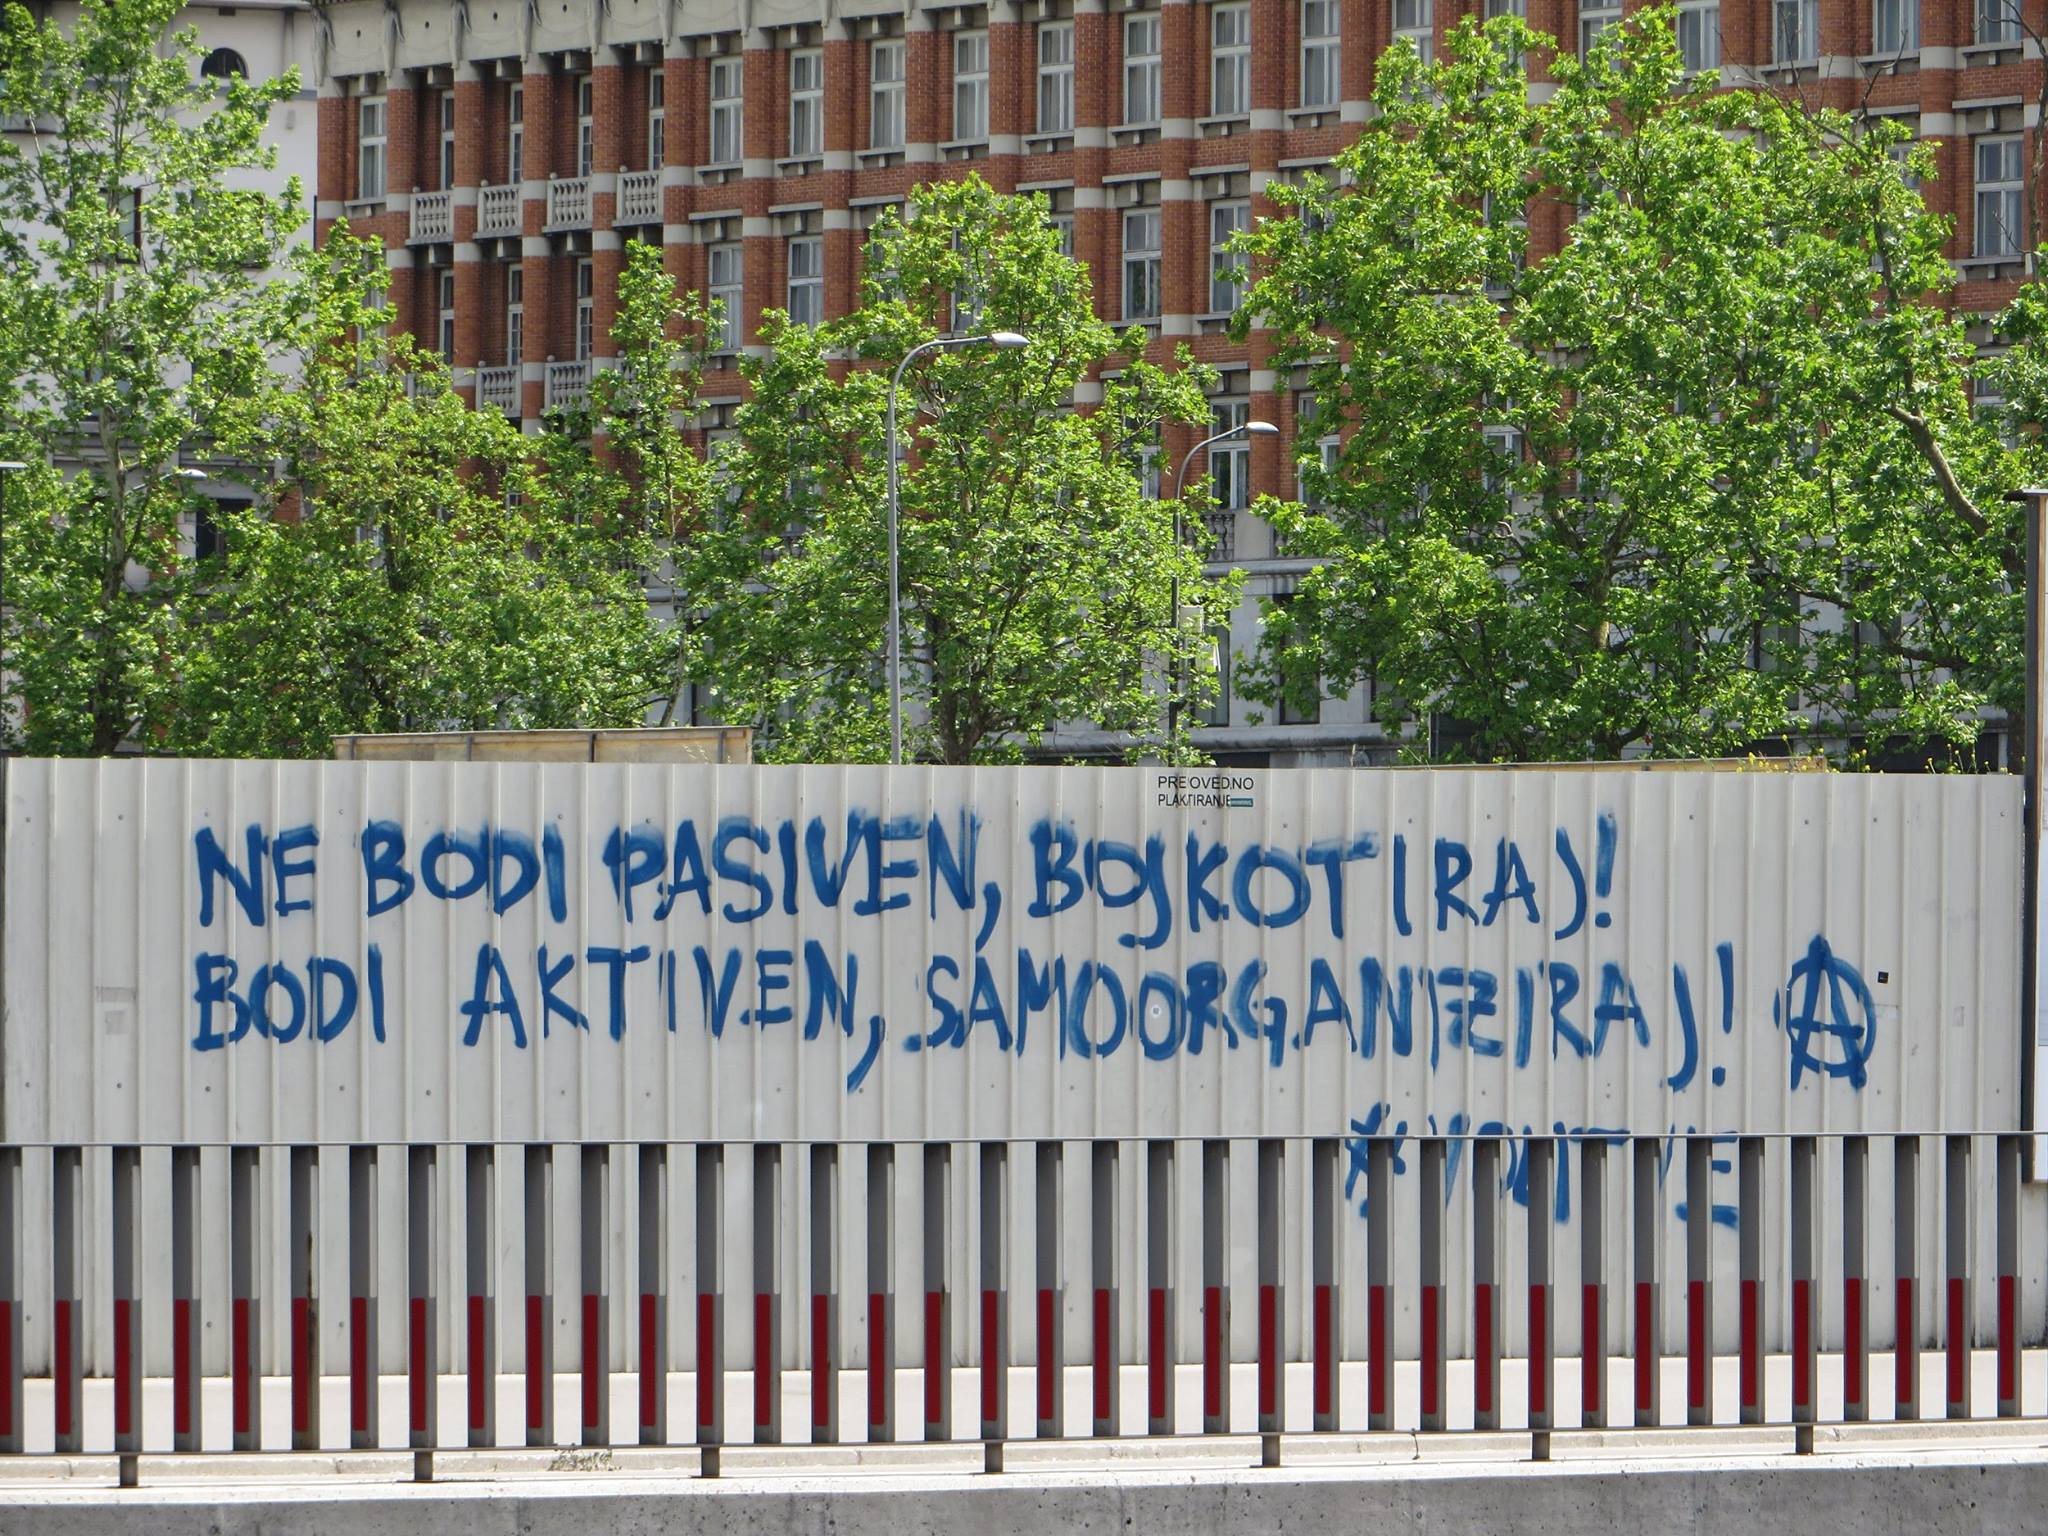 PREPOVEDANO
PLAKATIRANJE
NE BODI PASIVEN, BOJKOTIRAJ!
BODI AKTIVEN, SAMOORGANIZIRAJ! Ⓐ